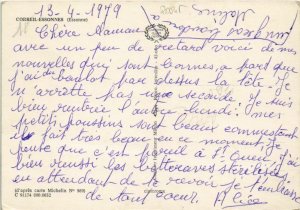 CORBEIL-ESSONNES (Essonne)
13-4-1979
Chère Maman
avec un peu de retard voici de mes
nouvelles qui sont bonnes, à part que
j'ai du boulot par dessus la tête. Je
n'arrette pas une seconde. Je suis
vraiment lundi. mes
petits poussins sont beaux
fait très beau en ce moment, je
pense que c'est pareil à St Quen. J'ai
bien reussi les betteraves sterelisées
en attendant de te revoir je t'embrasse
de tout coeur.
(d'après carte Michelin N° 989)
C 91174 000 0032